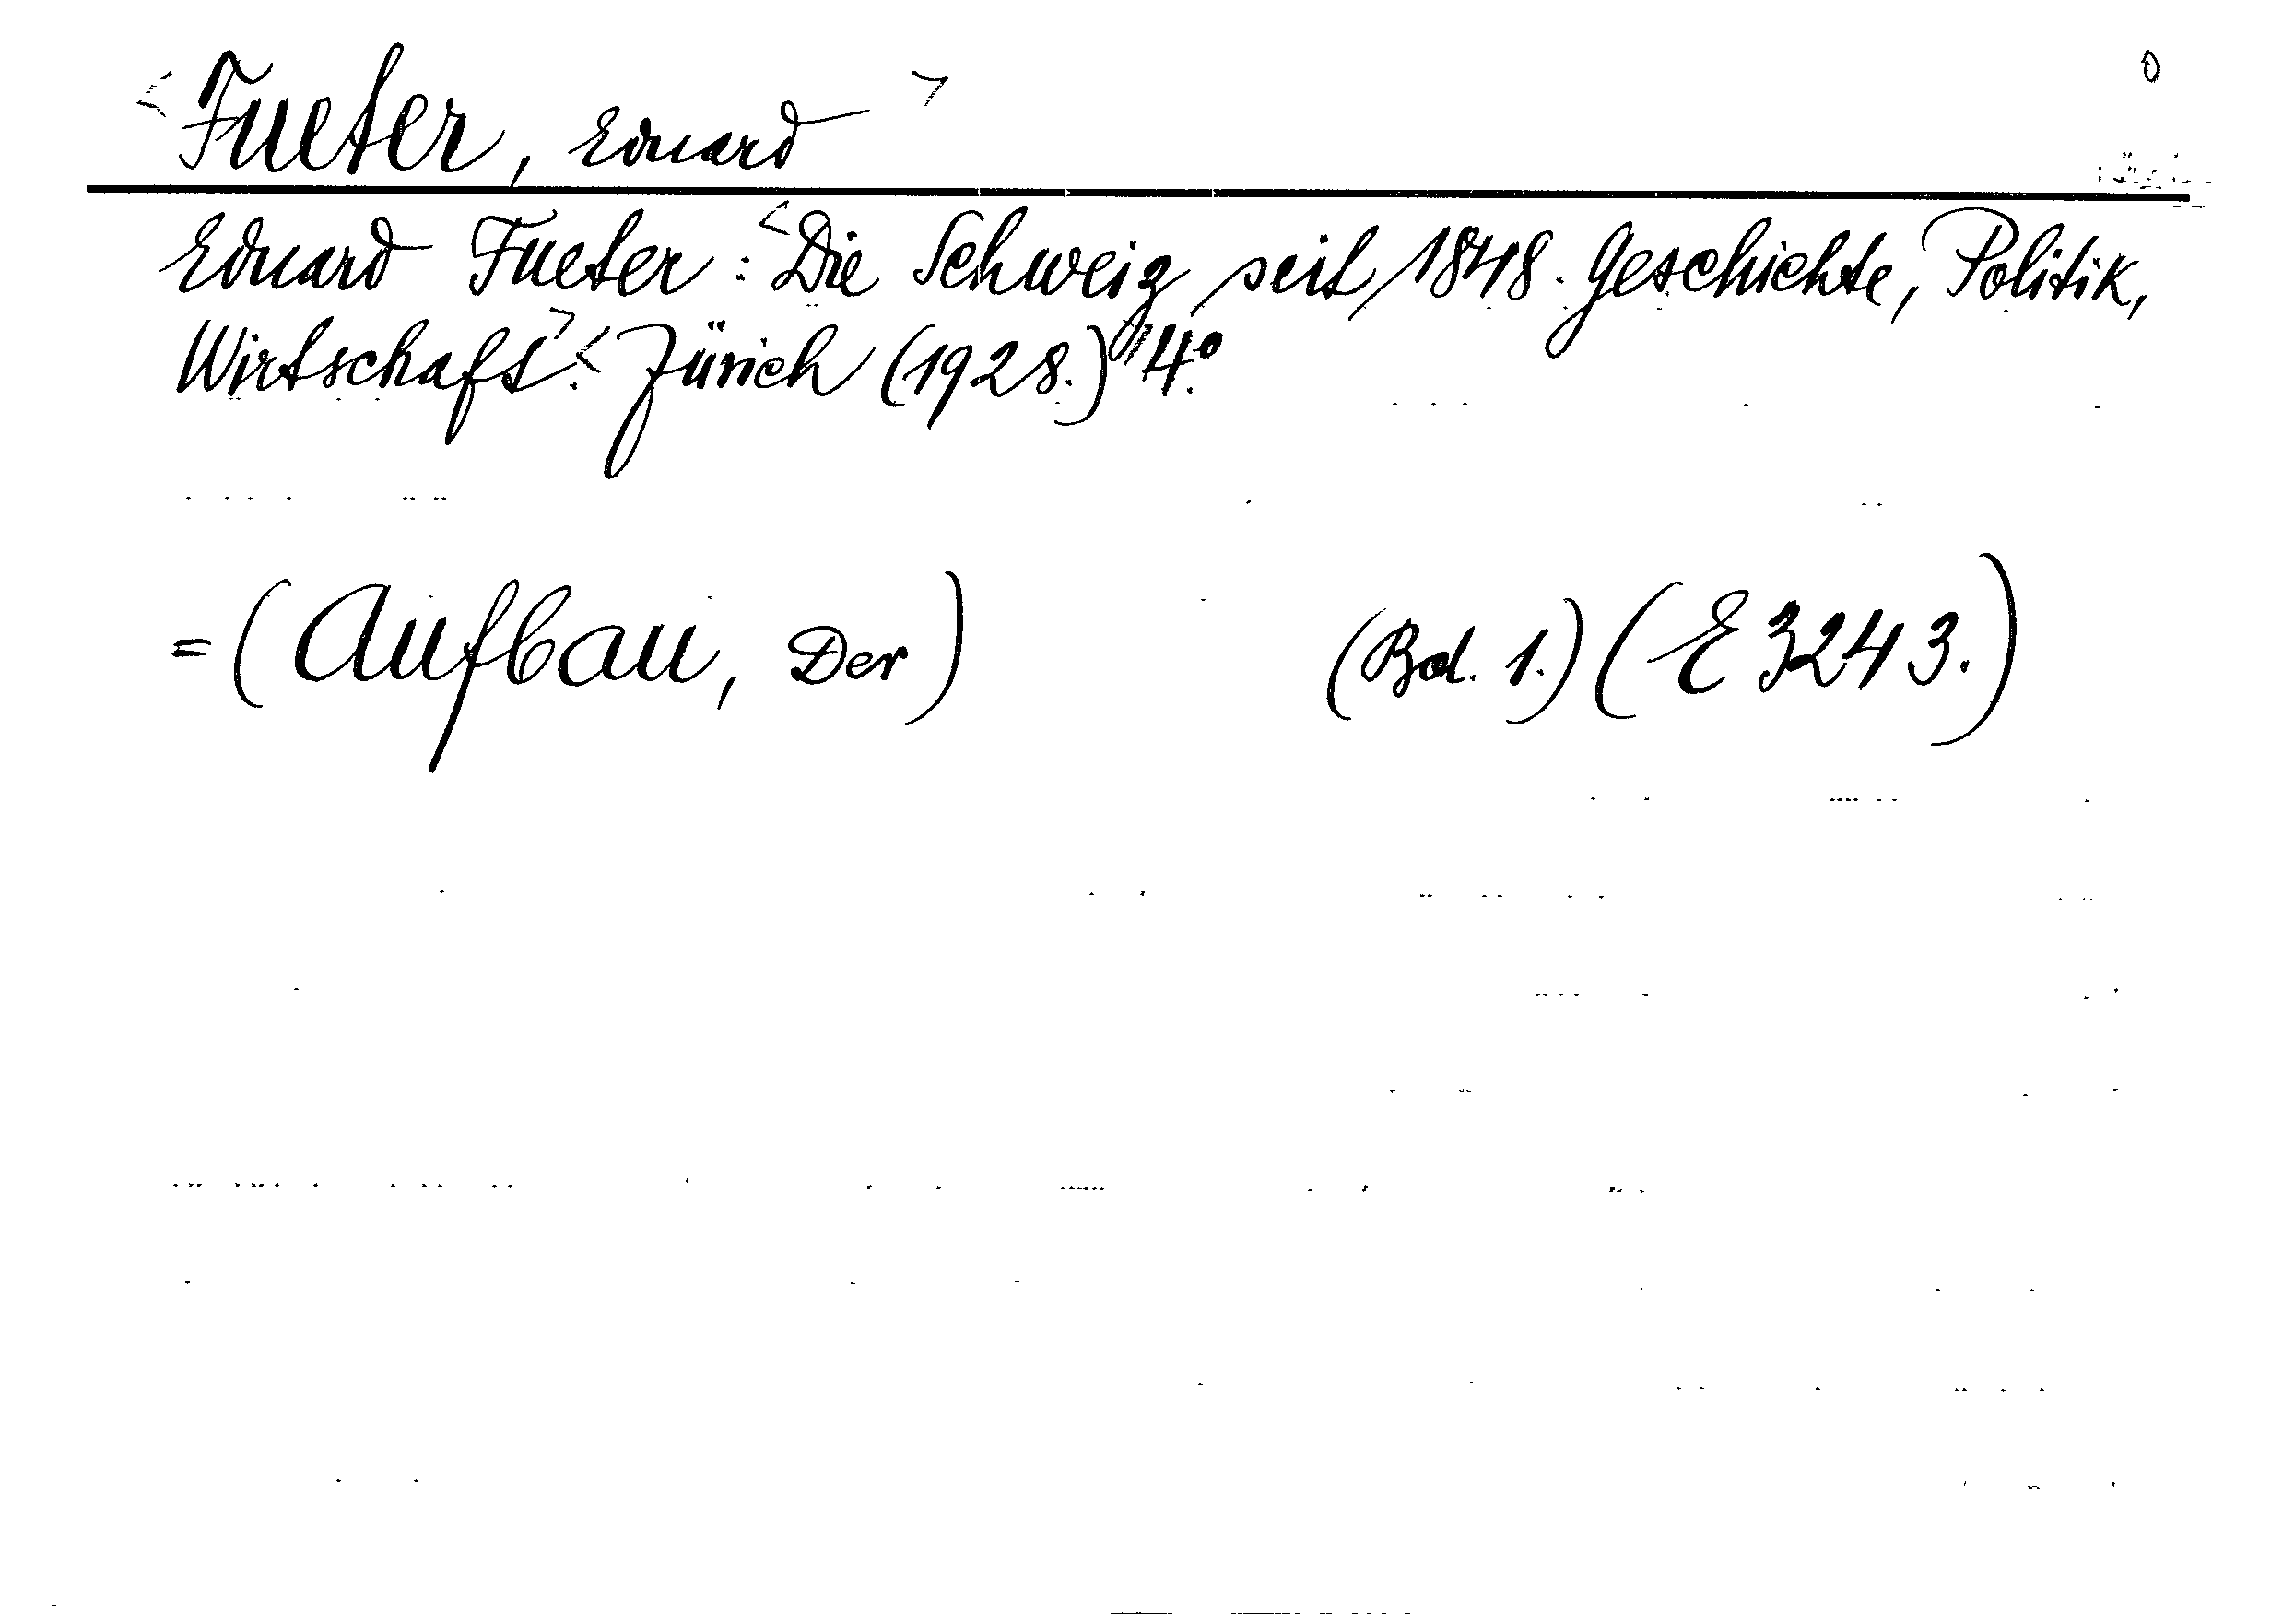 <Fueter, Eduard>
Eduard Fueter: <Die Schweiz seit 1848. Geschichte, Politik,
Wirtschaft>.< Zürich (1928.) 4.°
= (Aufbau, Der) (Bd. 1.) (E 3243.)